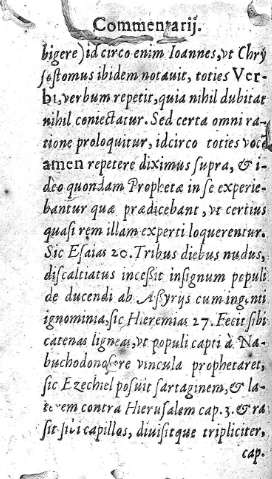 Commentarij.
bigere) id circo enim Ioannes, vt Chry
sostomus ibidem notauit, toties Ver-
bi, verbum repetit, quia nihil dubitat
nihil coniectatur. Sed certa omni ra-
tione proloquitur, idcirco toties vocẽ
amen repetere diximus supra, & i-
deo quondam Prophetæ in se experie-
bantur quæ prædicebant, vt certius
quasi rem illam experti loquerentur.
Sic Esaias 20. Tribus diebus nudus,
discaltiatus incessit in signum pepuli
de ducendi ab Assyrys cum ingenti
ignominia, sic Hieremias 27. Fecit sibi
catenas ligneas, vt populi capti à Na-
buchodonosore vincula prophetaret,
sic Ezechiel posuit sartaginem, & la-
terem contra Hierusalem cap. 3. & ra
sit sibi capillos, diuisitque tripliciter,
cap.